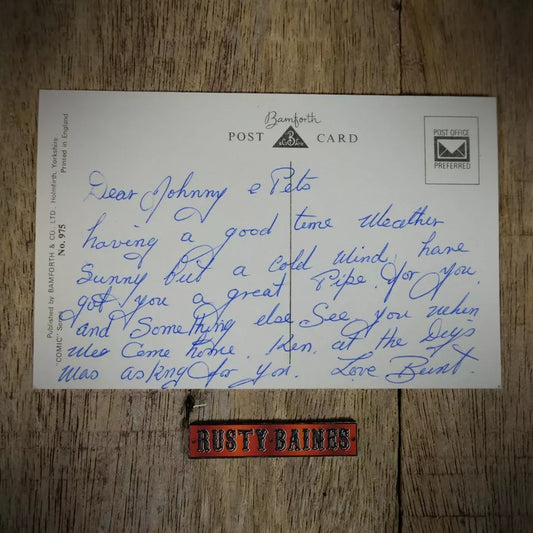 Bamforth
POST CARD
POST OFFICE
PREFERRED
Published by BAMFORTH & CO., LTD., Holmfirth, Yorkshire
Printed in England
"COMIC" Series
No. 975
Dear Johnny & Pets
having a good time Weather
Sunny but a cold wind, have
got you a great Pipe for you
and Something else See you when
we Come home. Ken. at the
was asking for you. Love
RUSTY·BAINES